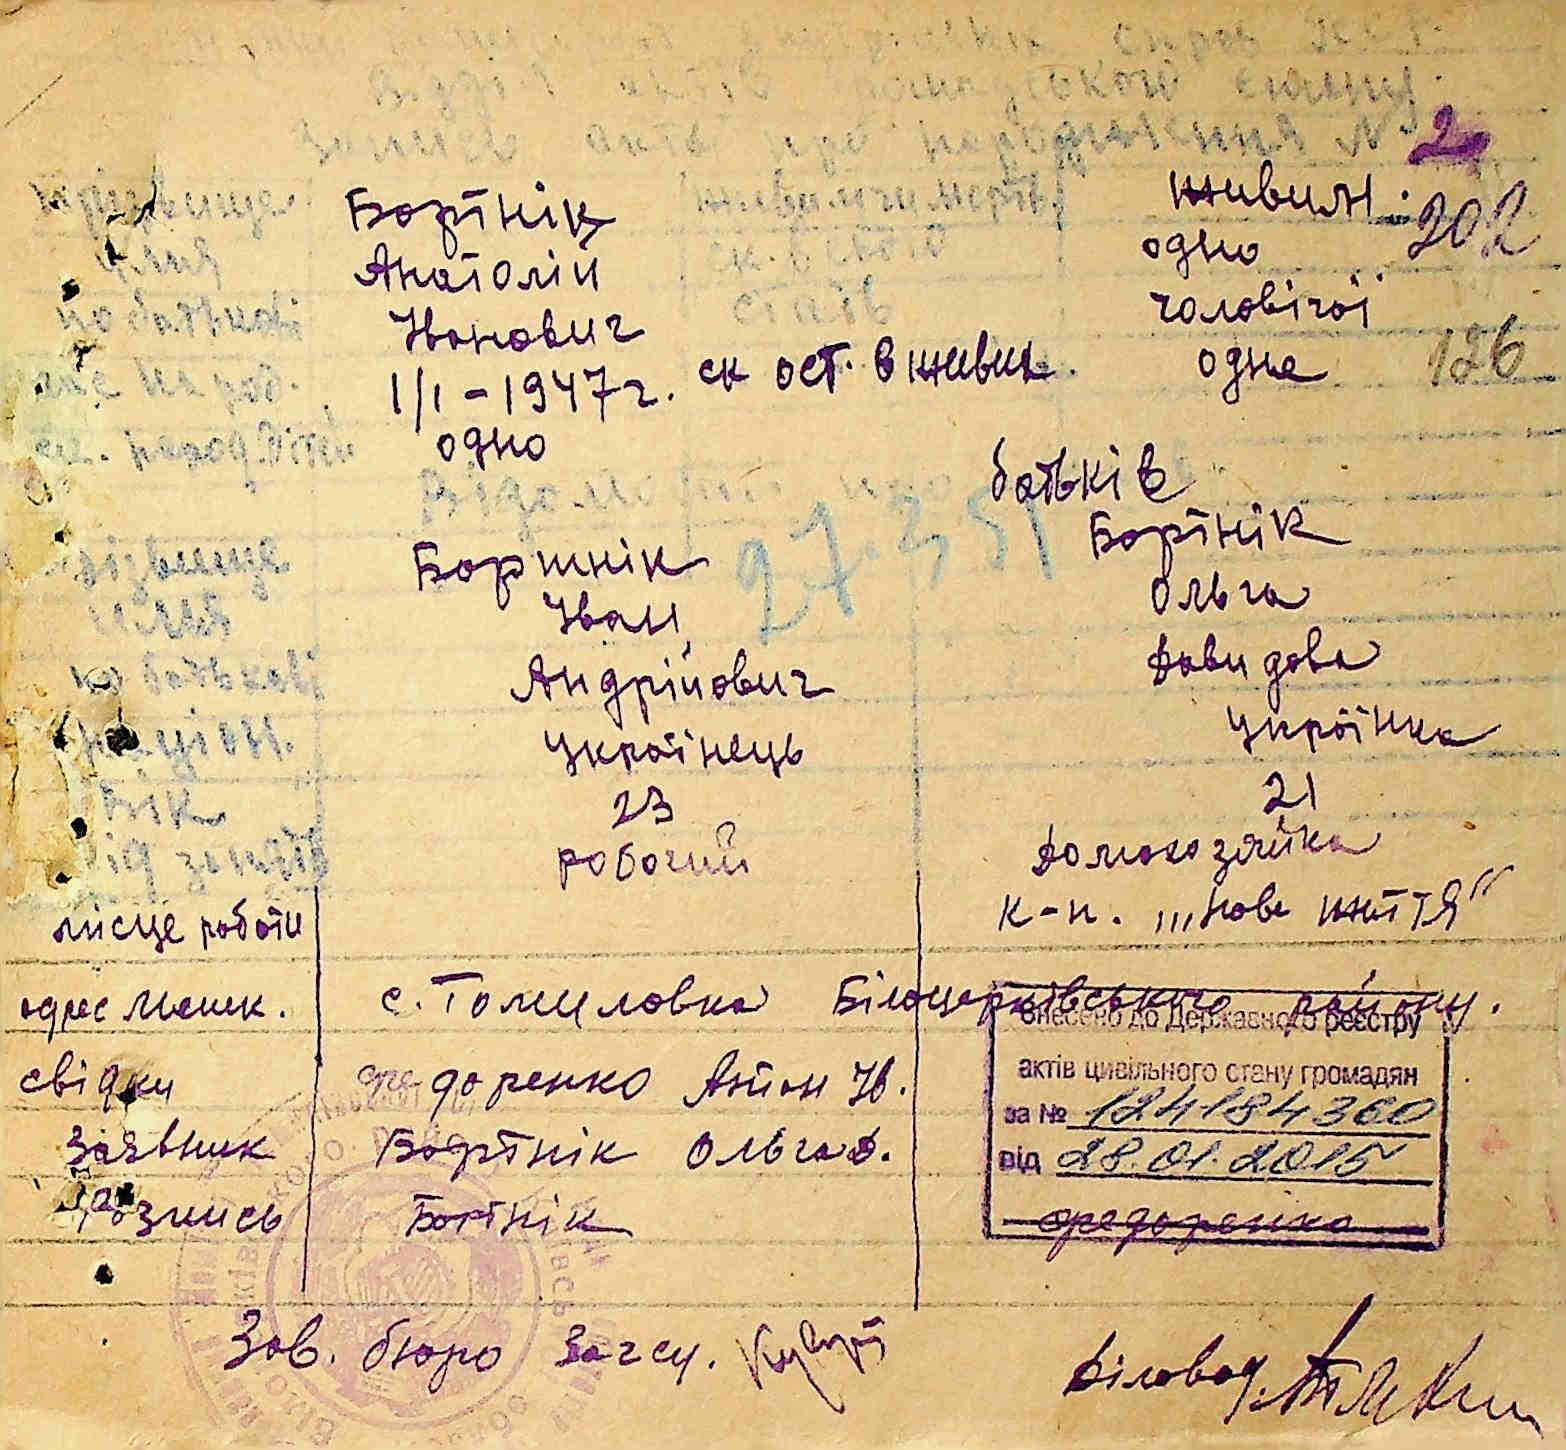 відділ актів громадського стану
запись акта про народження № 2
прізвище Бортнік живим чи мертв. живим. 202
имя Анатолій одно
по батькові Іванович стать чоловічої
1/І - 1947 г. ск ост. в живих одне 126
одно
Відомості про батьків
27.3.51
прізвище Бортнік Бортнік
имя Іван Ольга
по батькові Андрійович Давидова
націон. Українець Українка
вік 23 21
від занять робочий домохозяйка
місце роботи к-п. "нове життя"
адрес мешк. с. Томиловка Білоцерківського району.
свідки Федоренко Антон Ів.
заявник Бортнік Ольга Д.
розпись Бортнік Федоренко
Внесено до Державного реєстру
актів цивільного стану громадян
за № 124184360
від 28.01.2015
Зав. бюро Загсу.
Діловод.